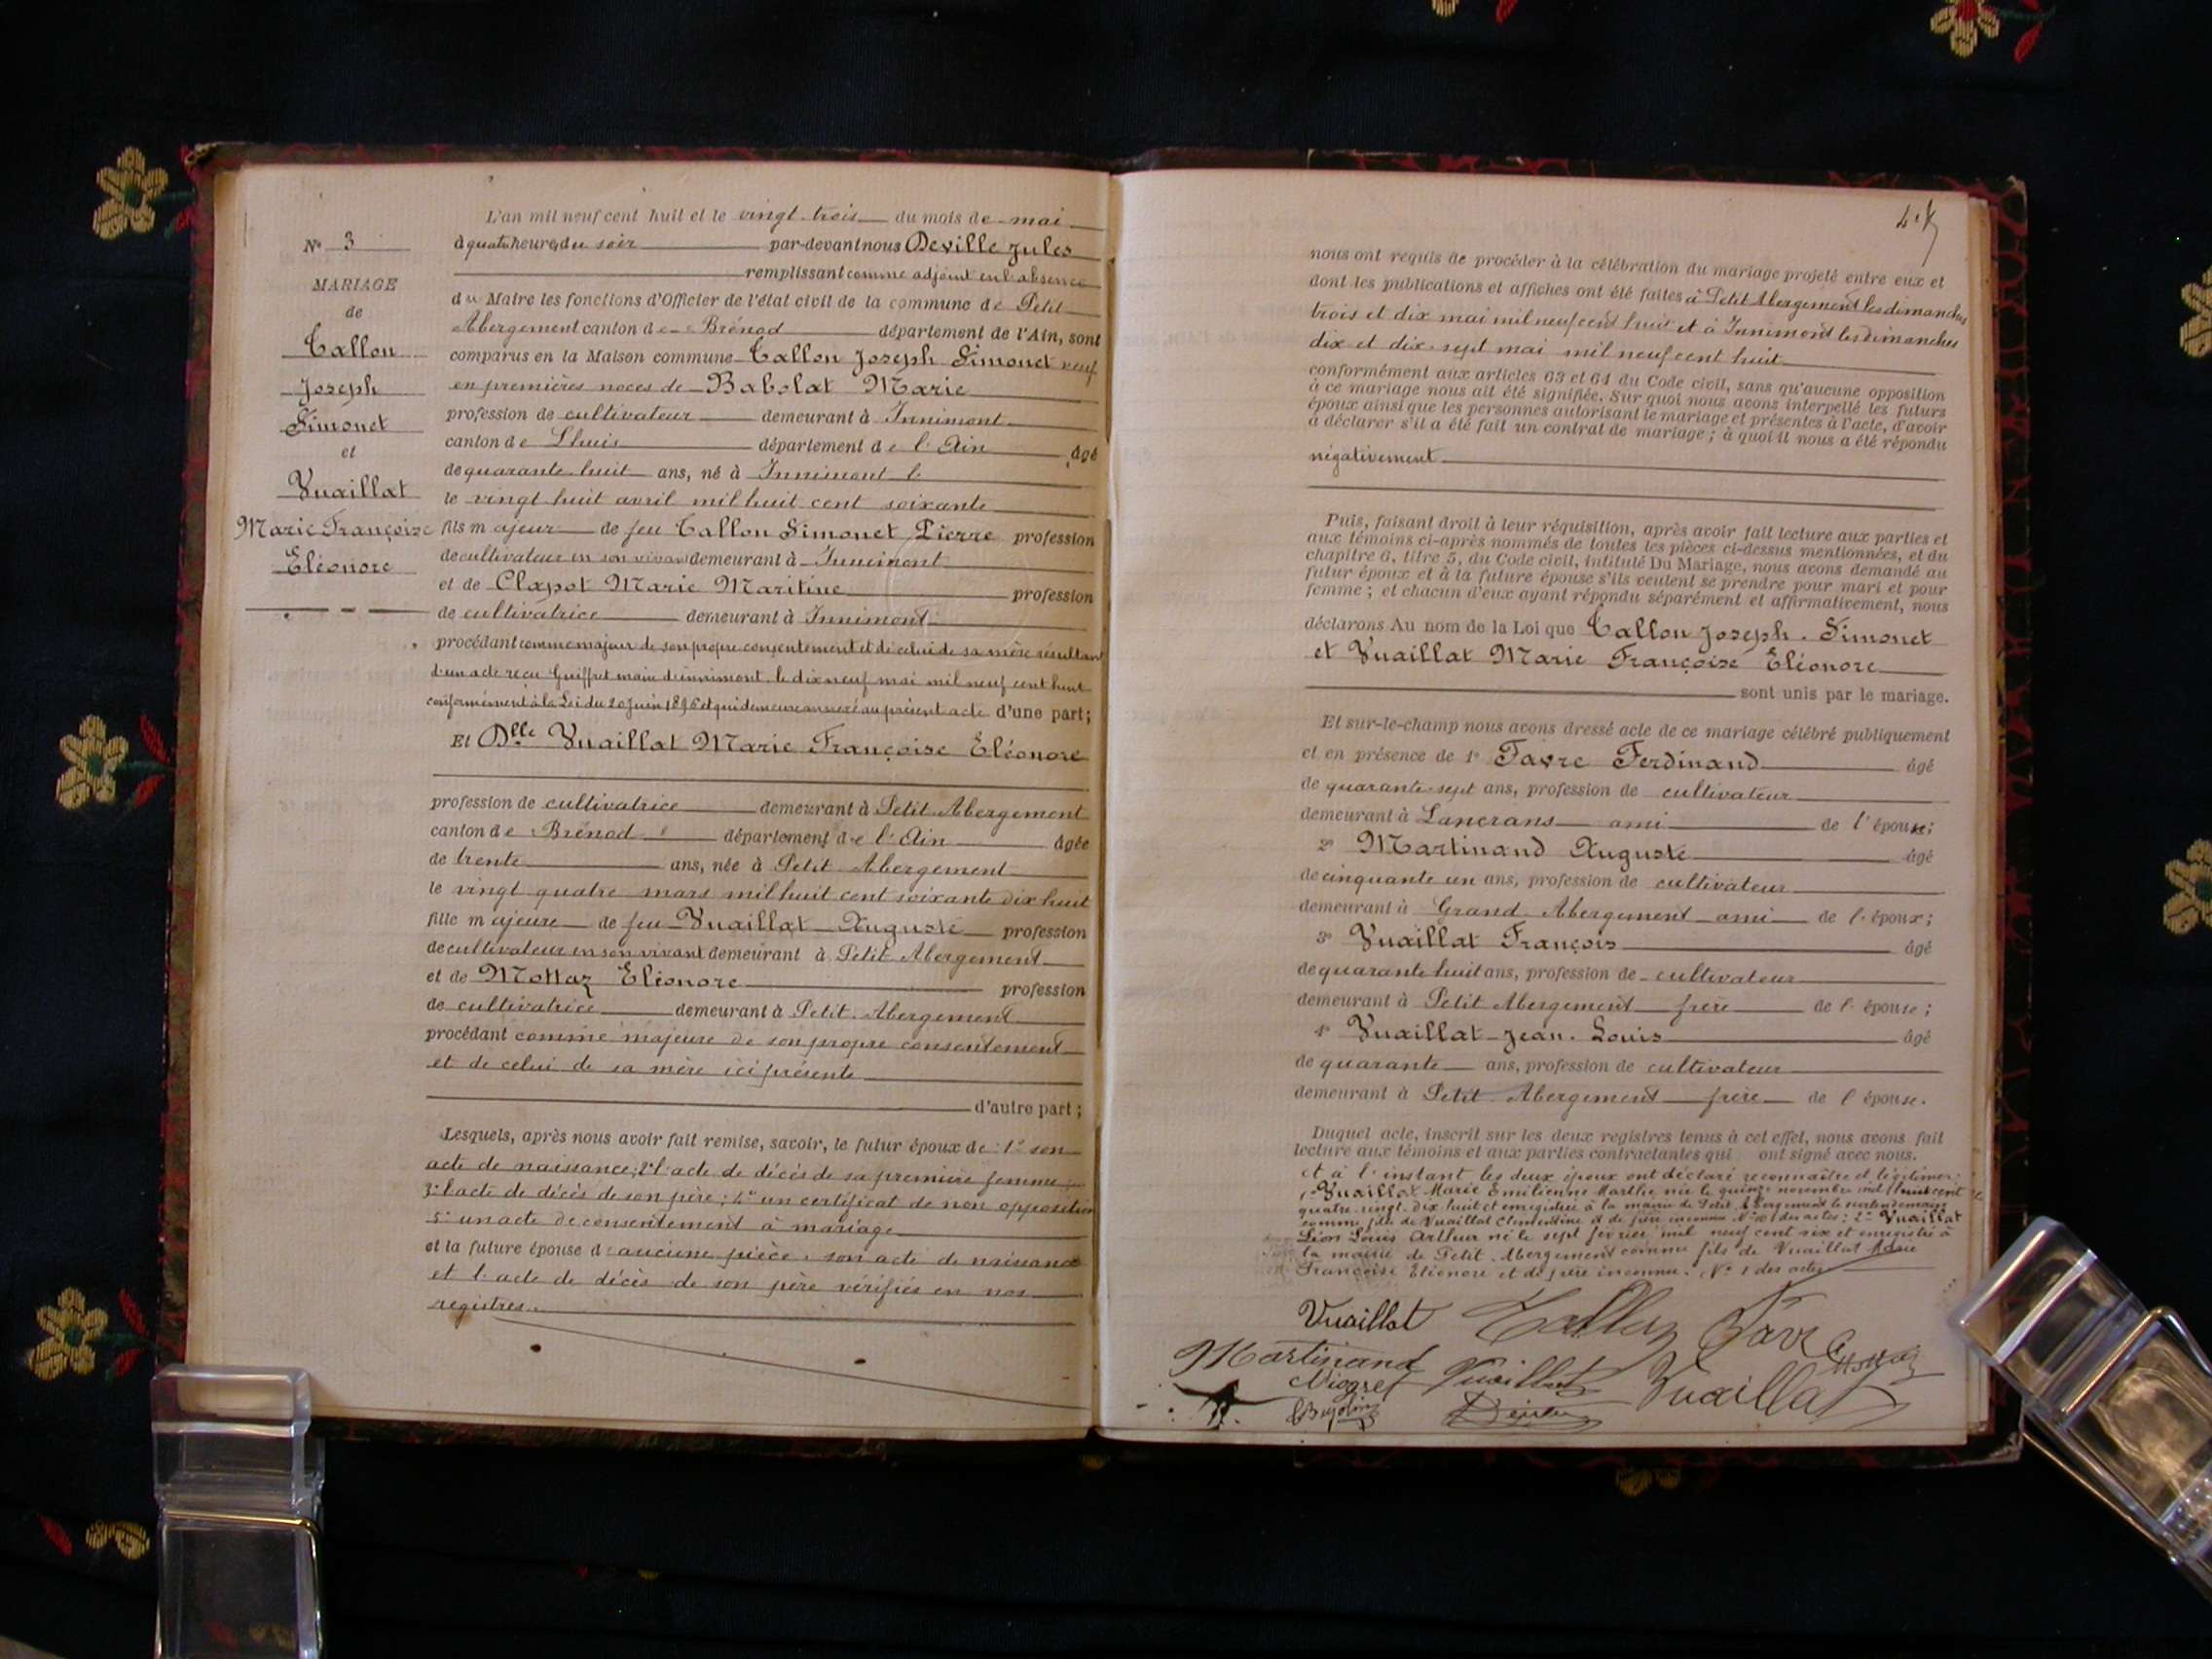 N° 3
MARIAGE
de
Tallon
Joseph
Simonet
et
Vuaillat
Marie Françoise
Eléonore
L'an mil neuf cent huit et le vingt-trois du mois de mai
à quatre heures du soir par-devant nous Deville Jules
remplissant comme adjoint en l'absence
du Maire les fonctions d'Officier de l'état civil de la commune de Petit
Abergement canton de Brénod département de l'Ain, sont
comparus en la Maison commune Tallon Joseph Simonet veuf
en premières noces de Babolat Marie
profession de cultivateur demeurant à Innimont
canton de Lhuis département de l'Ain âgé
de quarante huit ans, né à Innimont l
le vingt huit avril mil huit cent soixante
fils majeur de feu Tallon Simonet Pierre profession
de cultivateur en son vivant demeurant à Innimont
et de Clapot Marie Maritine profession
de cultivatrice demeurant à Innimont
procédant comme majeur de son propre consentement et de celui de sa mère résultant
d'un acte reçu Guiffret maire d'Innimont le dix neuf mai mil neuf cent huit
conformément à la Loi du 20 Juin 1896 et qui demeure annexé au présent acte d'une part;
Et Dlle Vuaillat Marie Françoise Eléonore
profession de cultivatrice demeurant à Petit Abergement
canton de Brénod département de l'Ain âgée
de trente ans, née à Petit Abergement
le vingt quatre mars mil huit cent soixante dix huit
fille majeure de feu Vuaillat Auguste profession
de cultivateur en son vivant demeurant à Petit Abergement
et de Mottaz Eléonore profession
de cultivatrice demeurant à Petit Abergement
procédant comme majeure de son propre consentement
et de celui de sa mère ici présente
d'autre part;
Lesquels, après nous avoir fait remise, savoir, le futur époux de 1° son
acte de naissance; 2° l'acte de décès de sa première femme
3° l'acte de décès de son père; 4° un certificat de non opposition
5° un acte de consentement à mariage
et la future épouse d'aucune pièce, son acte de naissance
et l'acte de décès de son père vérifiés en nos
registres.
nous ont requis de procéder à la célébration du mariage projeté entre eux et
dont les publications et affiches ont été faites à Petit Abergement les dimanches
trois et dix mai mil neuf cent huit et à Innimont les dimanches
dix et dix-sept mai mil neuf cent huit
conformément aux articles 63 et 64 du Code civil, sans qu'aucune opposition
à ce mariage nous ait été signifiée. Sur quoi nous avons interpellé les futurs
époux ainsi que les personnes autorisant le mariage et présentes à l'acte, d'avoir
à déclarer s'il a été fait un contrat de mariage; à quoi il nous a été répondu
négativement
Puis, faisant droit à leur réquisition, après avoir fait lecture aux parties et
aux témoins ci-après nommés de toutes les pièces ci-dessus mentionnées, et du
chapitre 6, titre 5, du Code civil, intitulé Du Mariage, nous avons demandé au
futur époux et à la future épouse s'ils veulent se prendre pour mari et pour
femme; et chacun d'eux ayant répondu séparément et affirmativement, nous
déclarons Au nom de la Loi que Tallon Joseph. Simonet
et Vuaillat Marie Françoise Eléonore
sont unis par le mariage.
Et sur-le-champ nous avons dressé acte de ce mariage célébré publiquement
et en présence de 1° Favre Ferdinand âgé
de quarante-sept ans, profession de cultivateur
demeurant à Lancrans ami de l'épouse;
2° Martinand Auguste âgé
de cinquante un ans, profession de cultivateur
demeurant à Grand Abergement ami de l'époux;
3° Vuaillat François âgé
de quarante huit ans, profession de cultivateur
demeurant à Petit Abergement frère de l'épouse;
4° Vuaillat Jean-Louis âgé
de quarante ans, profession de cultivateur
demeurant à Petit Abergement frère de l'épouse.
Duquel acte, inscrit sur les deux registres tenus à cet effet, nous avons fait
lecture aux témoins et aux parties contractantes qui ont signé avec nous.
et à l'instant les deux époux ont déclaré reconnaître et légitimer:
1° Vuaillat Marie Emilienne Marthe née le quinze novembre mil huit cent
quatre-vingt-dix huit et enregistrée à la mairie de Petit Abergement le surlendemain
comme fille de Vuaillat Clémentine et de père inconnu des actes; 2° Vuaillat
Léon Louis Arthur né le sept février mil neuf cent six et enregistré à
la mairie de Petit Abergement comme fils de Vuaillat Marie
Françoise Eléonore et de père inconnu. N° 1 des actes
Vuaillat Tallon Favre Mottaz
Martinand Vuaillat Vuaillat
Niogret